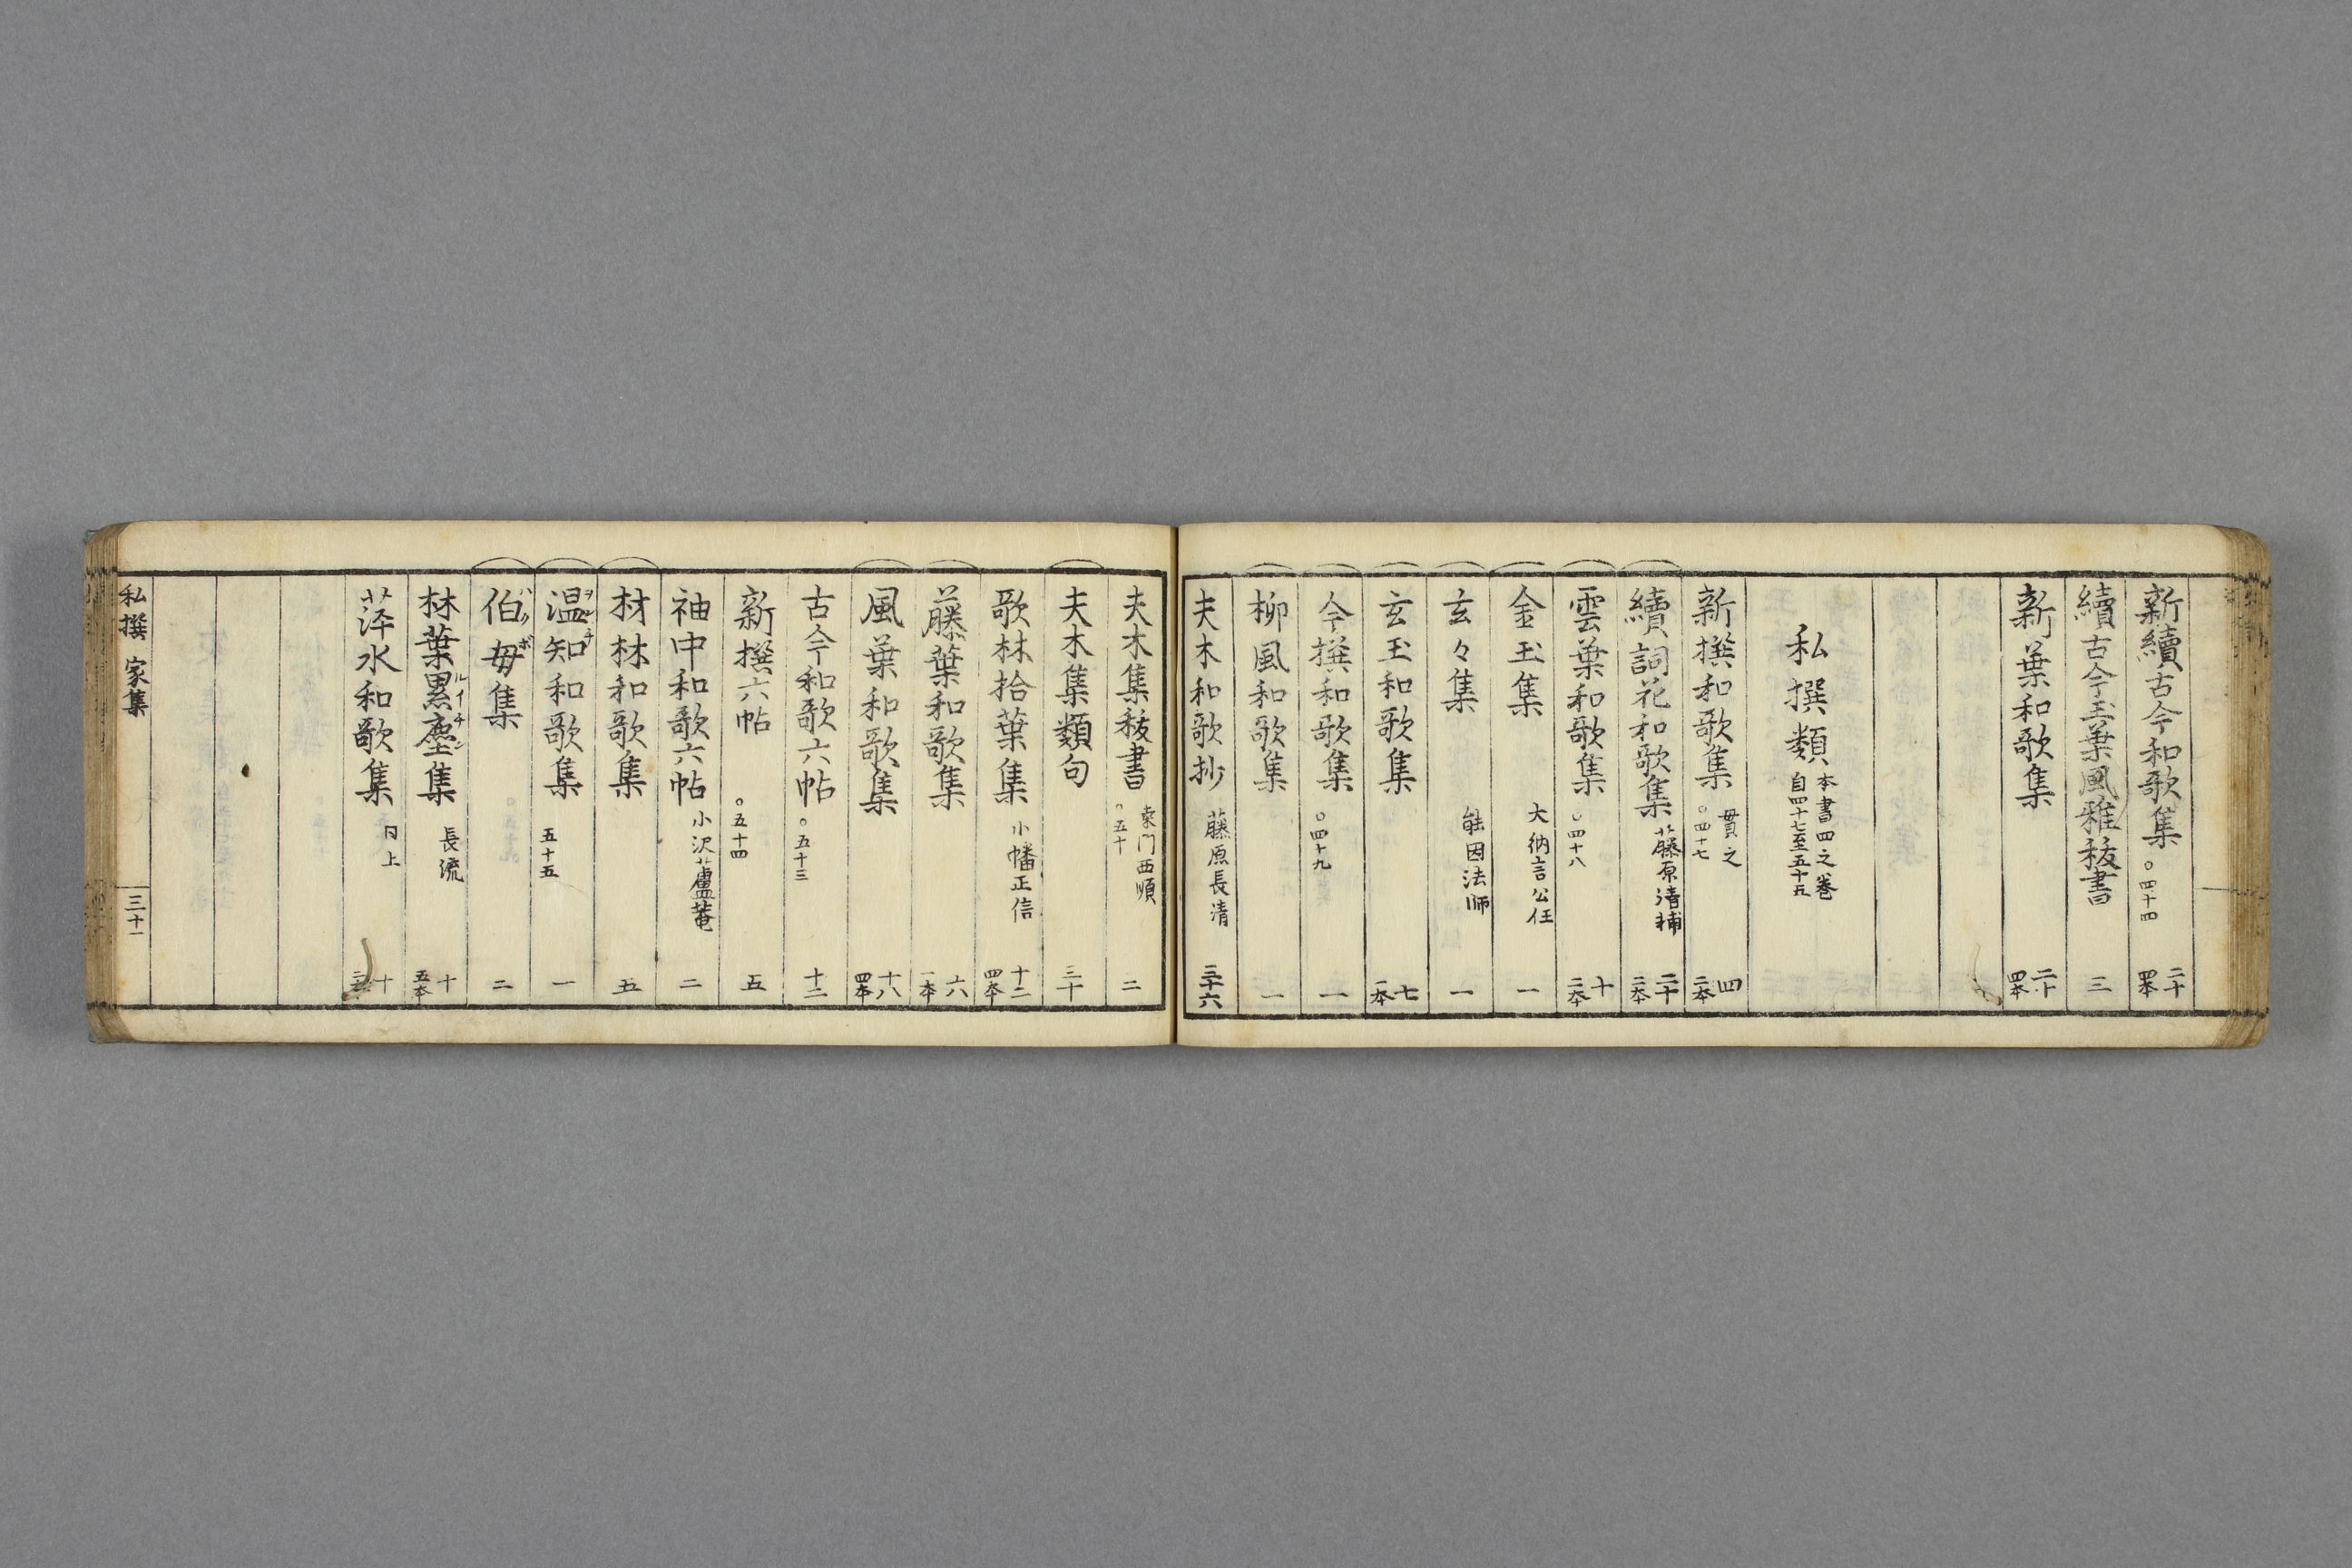 新續古今和歌集 ○四十四 二十 四本
續古今玉葉風雅秡書 三
新葉和歌集 二十 四本
私撰類 本書四之巻 自四十七至五十五
新撰和歌集 貫之 ○四十七 四 二本
續詞花和歌集 藤原清補 二十 二本
雲葉和歌集 ○四十八 十 二本
金玉集 大納言公任 一
玄々集 能因法師 一
玄玉和歌集 七 一本
今撰和歌集 ○四十九 一
柳風和歌集 一
夫木和歌抄 藤原長清 三十六
夫木集秡書 桒門西順 ○五十 二
夫木集類句 三十
歌林拾葉集 小幡正信 十二 四本
藤葉和歌集 六 一本
風葉和歌集 十八 四本
古今和歌六帖 ○五十三 十二
新撰六帖 ○五十四 五
袖中和歌六帖 小沢蘆菴 二
材林和歌集 五
温知和歌集 ヲンチ 五十五 一
伯毋集 ハクボ 二
林葉累塵集 ルイヂン 長流 十 五本
萍水和歌集 同上 十
私撰 家集
三十一